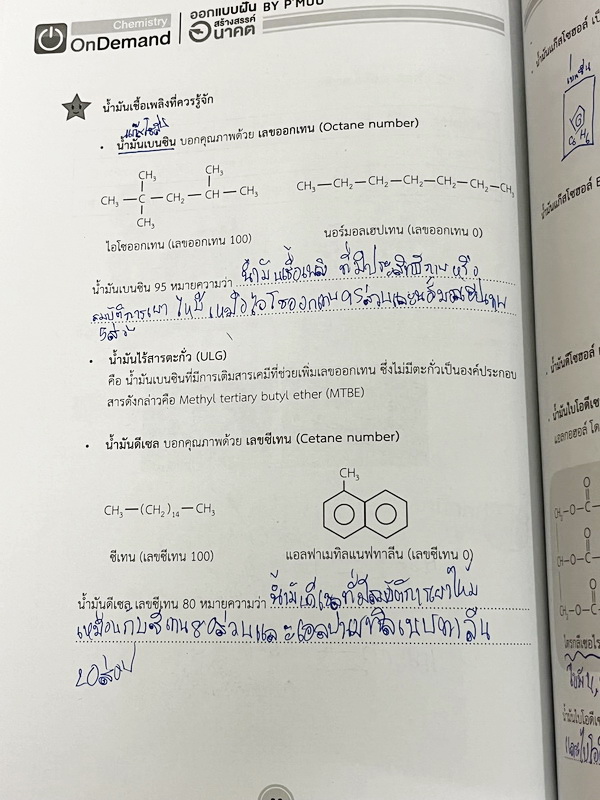 Chemistry
OnDemand
ออกแบบฝัน BY P'MUU
สร้างสรรค์
อนาคต
น้ำมันเชื้อเพลิงที่ควรรู้จัก
• น้ำมันเบนซิน บอกคุณภาพด้วย เลขออกเทน (Octane number)
CH₃ CH₃
CH₃—C—CH₂—CH—CH₃ CH₃—CH₂—CH₂—CH₂—CH₂—CH₂—CH₃
CH₃
ไอโซออกเทน (เลขออกเทน 100) นอร์มอลเฮปเทน (เลขออกเทน 0)
น้ำมันเบนซิน 95 หมายความว่า น้ำมันเชื้อเพลิง ที่มีประสิทธิภาพหรือ
สมบัติการเผาไหม้เหมือนไอโซออกเทน 95 ส่วนและนอร์มอลเฮปเทน
5 ส่วน
• น้ำมันไร้สารตะกั่ว (ULG)
คือ น้ำมันเบนซินที่มีการเติมสารเคมีที่ช่วยเพิ่มเลขออกเทน ซึ่งไม่มีตะกั่วเป็นองค์ประกอบ
สารดังกล่าวคือ Methyl tertiary butyl ether (MTBE)
• น้ำมันดีเซล บอกคุณภาพด้วย เลขซีเทน (Cetane number)
CH₃
CH₃—(CH₂)₁₄—CH₃
ซีเทน (เลขซีเทน 100) แอลฟาเมทิลแนฟทาลีน (เลขซีเทน 0)
น้ำมันดีเซล เลขซีเทน 80 หมายความว่า น้ำมันดีเซลที่มีสมบัติการเผาไหม้
เหมือนกับซีเทน 80 ส่วนและแอลฟาเมทิลแนฟทาลีน
20 ส่วน